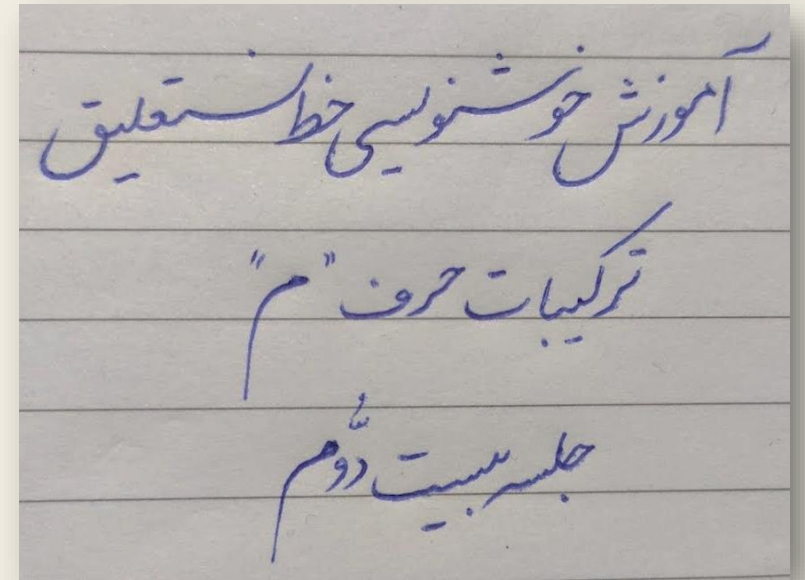 آموزش خوشنویسی خط نستعلیق
ترکیبات حرف "م"
جلسه بیست دوّم